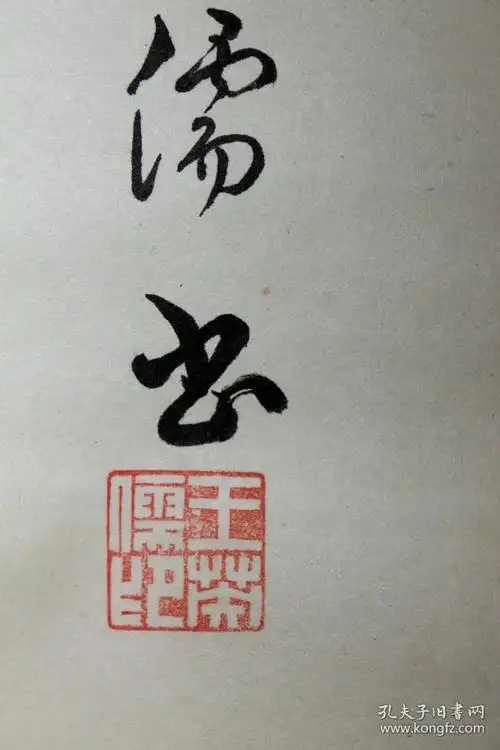 儒
書
王荣
儒印
孔夫子旧书网
www.kongfz.com